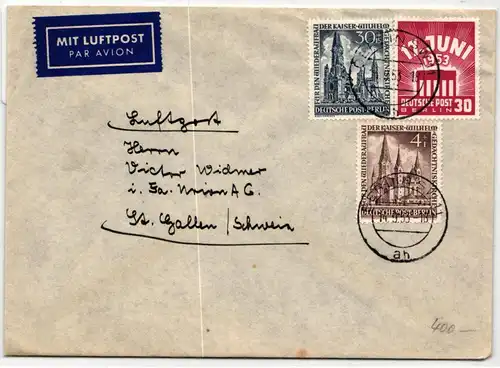 MIT LUFTPOST
PAR AVION
30
FÜR DEN WIEDERAUFBAU DER KAISER-WILHELM-GEDÄCHTNISKIRCHE
DEUTSCHE POST-BERLIN
17. JUNI
1953
DEUTSCHE POST
BERLIN 30
Luftpost
Herrn
Victor Widmer
i. Fa. Union A.G.
St. Gallen / Schweiz
4
FÜR DEN WIEDERAUFBAU DER KAISER-WILHELM-GEDÄCHTNISKIRCHE
DEUTSCHE POST-BERLIN
ah
400.—